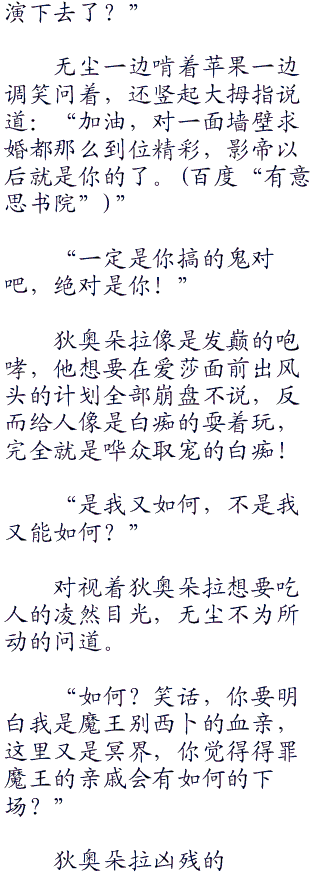 演下去了？”
无尘一边啃着苹果一边
调笑问着，还竖起大拇指说
道：“加油，对一面墙壁求
婚都那么到位精彩，影帝以
后就是你的了。(百度“有意
思书院”)”
“一定是你搞的鬼对
吧，绝对是你！”
狄奥朵拉像是发巅的咆
哮，他想要在爱莎面前出风
头的计划全部崩盘不说，反
而给人像是白痴的耍着玩，
完全就是哗众取宠的白痴！
“是我又如何，不是我
又能如何？”
对视着狄奥朵拉想要吃
人的凌然目光，无尘不为所
动的问道。
“如何？笑话，你要明
白我是魔王别西卜的血亲，
这里又是冥界，你觉得得罪
魔王的亲戚会有如何的下
场？”
狄奥朵拉凶残的